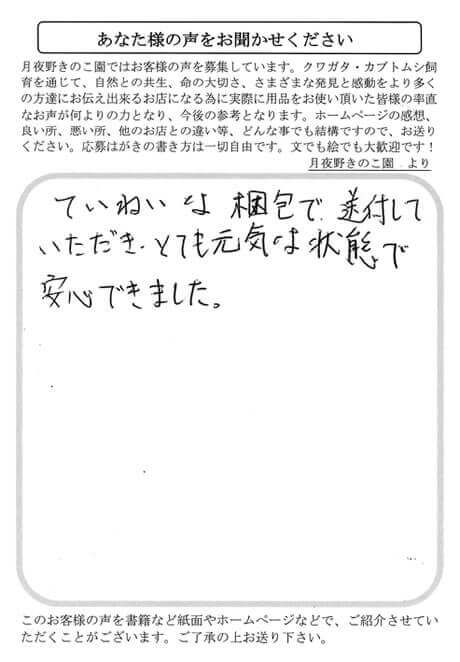 あなた様の声をお聞かせください
月夜野きのこ園ではお客様の声を募集しています。クワガタ・カブトムシ飼
育を通じて、自然との共生、命の大切さ、さまざまな発見と感動をより多く
の方達にお伝え出来るお店になる為に実際に用品をお使い頂いた皆様の率直
なお声が何よりの力となり、今後の参考となります。ホームページの感想、
良い所、悪い所、他のお店との違い等、どんな事でも結構ですので、お送り
ください。応募はがきの書き方は一切自由です。文でも絵でも大歓迎です！
月夜野きのこ園 より
ていねいな 梱包で 送付して
いただき、とても元気な状態で
安心できました。
このお客様の声を書籍など紙面やホームページなどで、ご紹介させてい
ただくことがございます。ご了承の上お送り下さい。